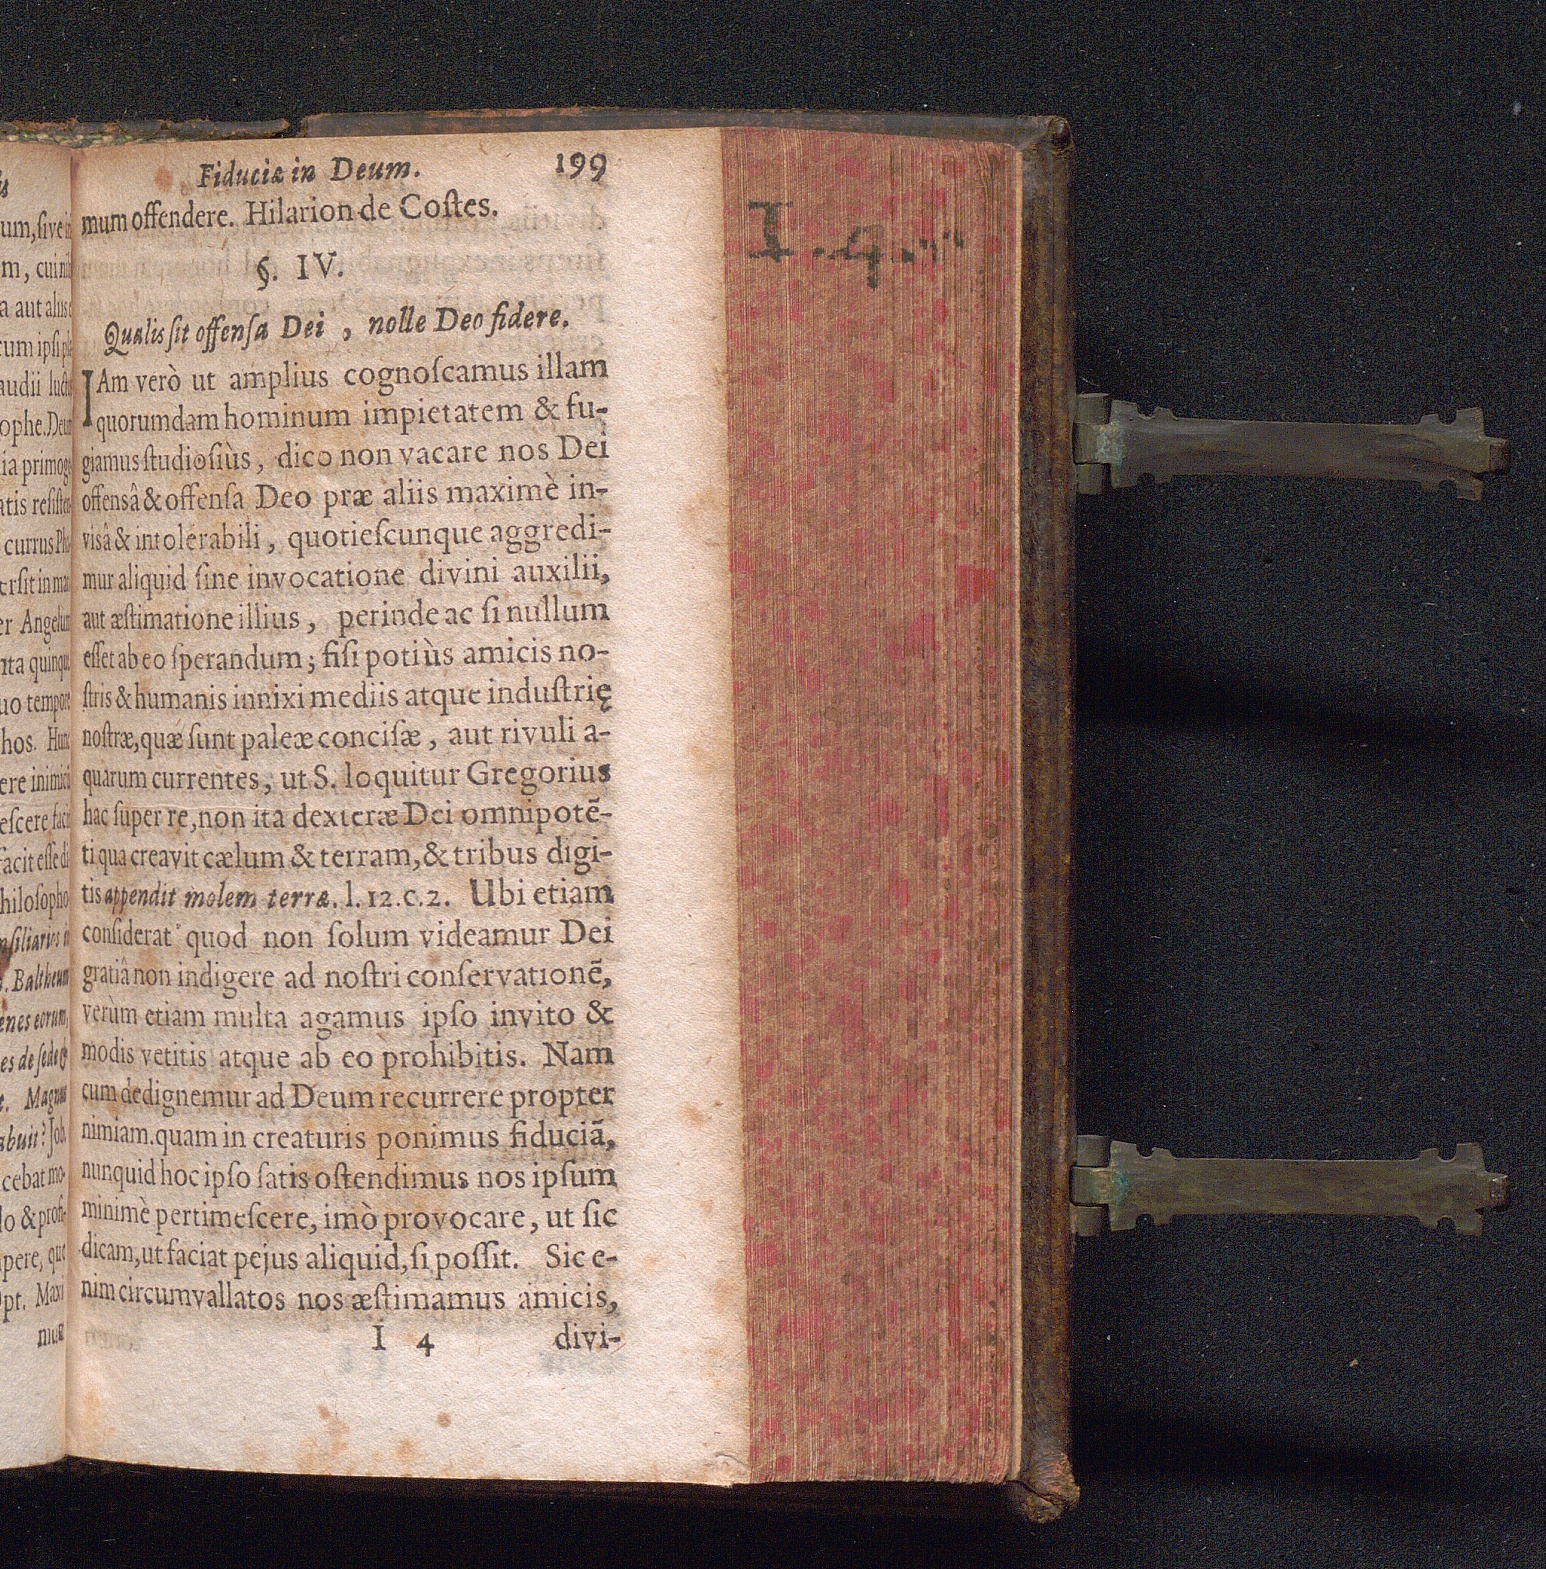 Fiduciæ in Deum. 199
mum offendere. Hilarion de Coſtes.
§. IV.
Qualis ſit offenſa Dei , nolle Deo fidere.
IAm verò ut amplius cognoſcamus illam
quorumdam hominum impietatem & fu-
giamus ſtudioſiùs, dico non vacare nos Dei
offensâ & offenſa Deo præ aliis maximè in-
visâ & intolerabili, quotieſcunque aggredi-
mur aliquid ſine invocatione divini auxilii,
aut æſtimatione illius, perinde ac ſi nullum
eſſet ab eo ſperandum; fiſi potiùs amicis no-
ſtris & humanis innixi mediis atque induſtrię
noſtræ, quæ ſunt paleæ conciſæ, aut rivuli a-
quarum currentes, ut S. loquitur Gregorius
hac ſuper re, non ita dexteræ Dei omnipotẽ-
ti qua creavit cælum & terram, & tribus digi-
tis appendit molem terræ. l. 12. c. 2. Ubi etiam
conſiderat quod non ſolum videamur Dei
gratiâ non indigere ad noſtri conſervationẽ,
verùm etiam multa agamus ipſo invito &
modis vetitis atque ab eo prohibitis. Nam
cum dedignemur ad Deum recurrere propter
nimiam.quam in creaturis ponimus fiduciã,
nunquid hoc ipſo ſatis oſtendimus nos ipſum
minimè pertimeſcere, imò provocare, ut ſic
dicam, ut faciat pejus aliquid, ſi poſſit. Sic e-
nim circumvallatos nos æſtimamus amicis,
I 4 divi-
um, ſive
m, cui
a aut
cum ipſi
audii
ophe. Deum
ia
atis
currus
er Angelum
ita
uo tempore
hos.
ere
eſcere
facit eſſe
hiloſopho
Baltheum
enes eorum,
es de ſede
t.
abuit? Job.
cebat mo-
lo &
pere, que
pt. Maxi
mum